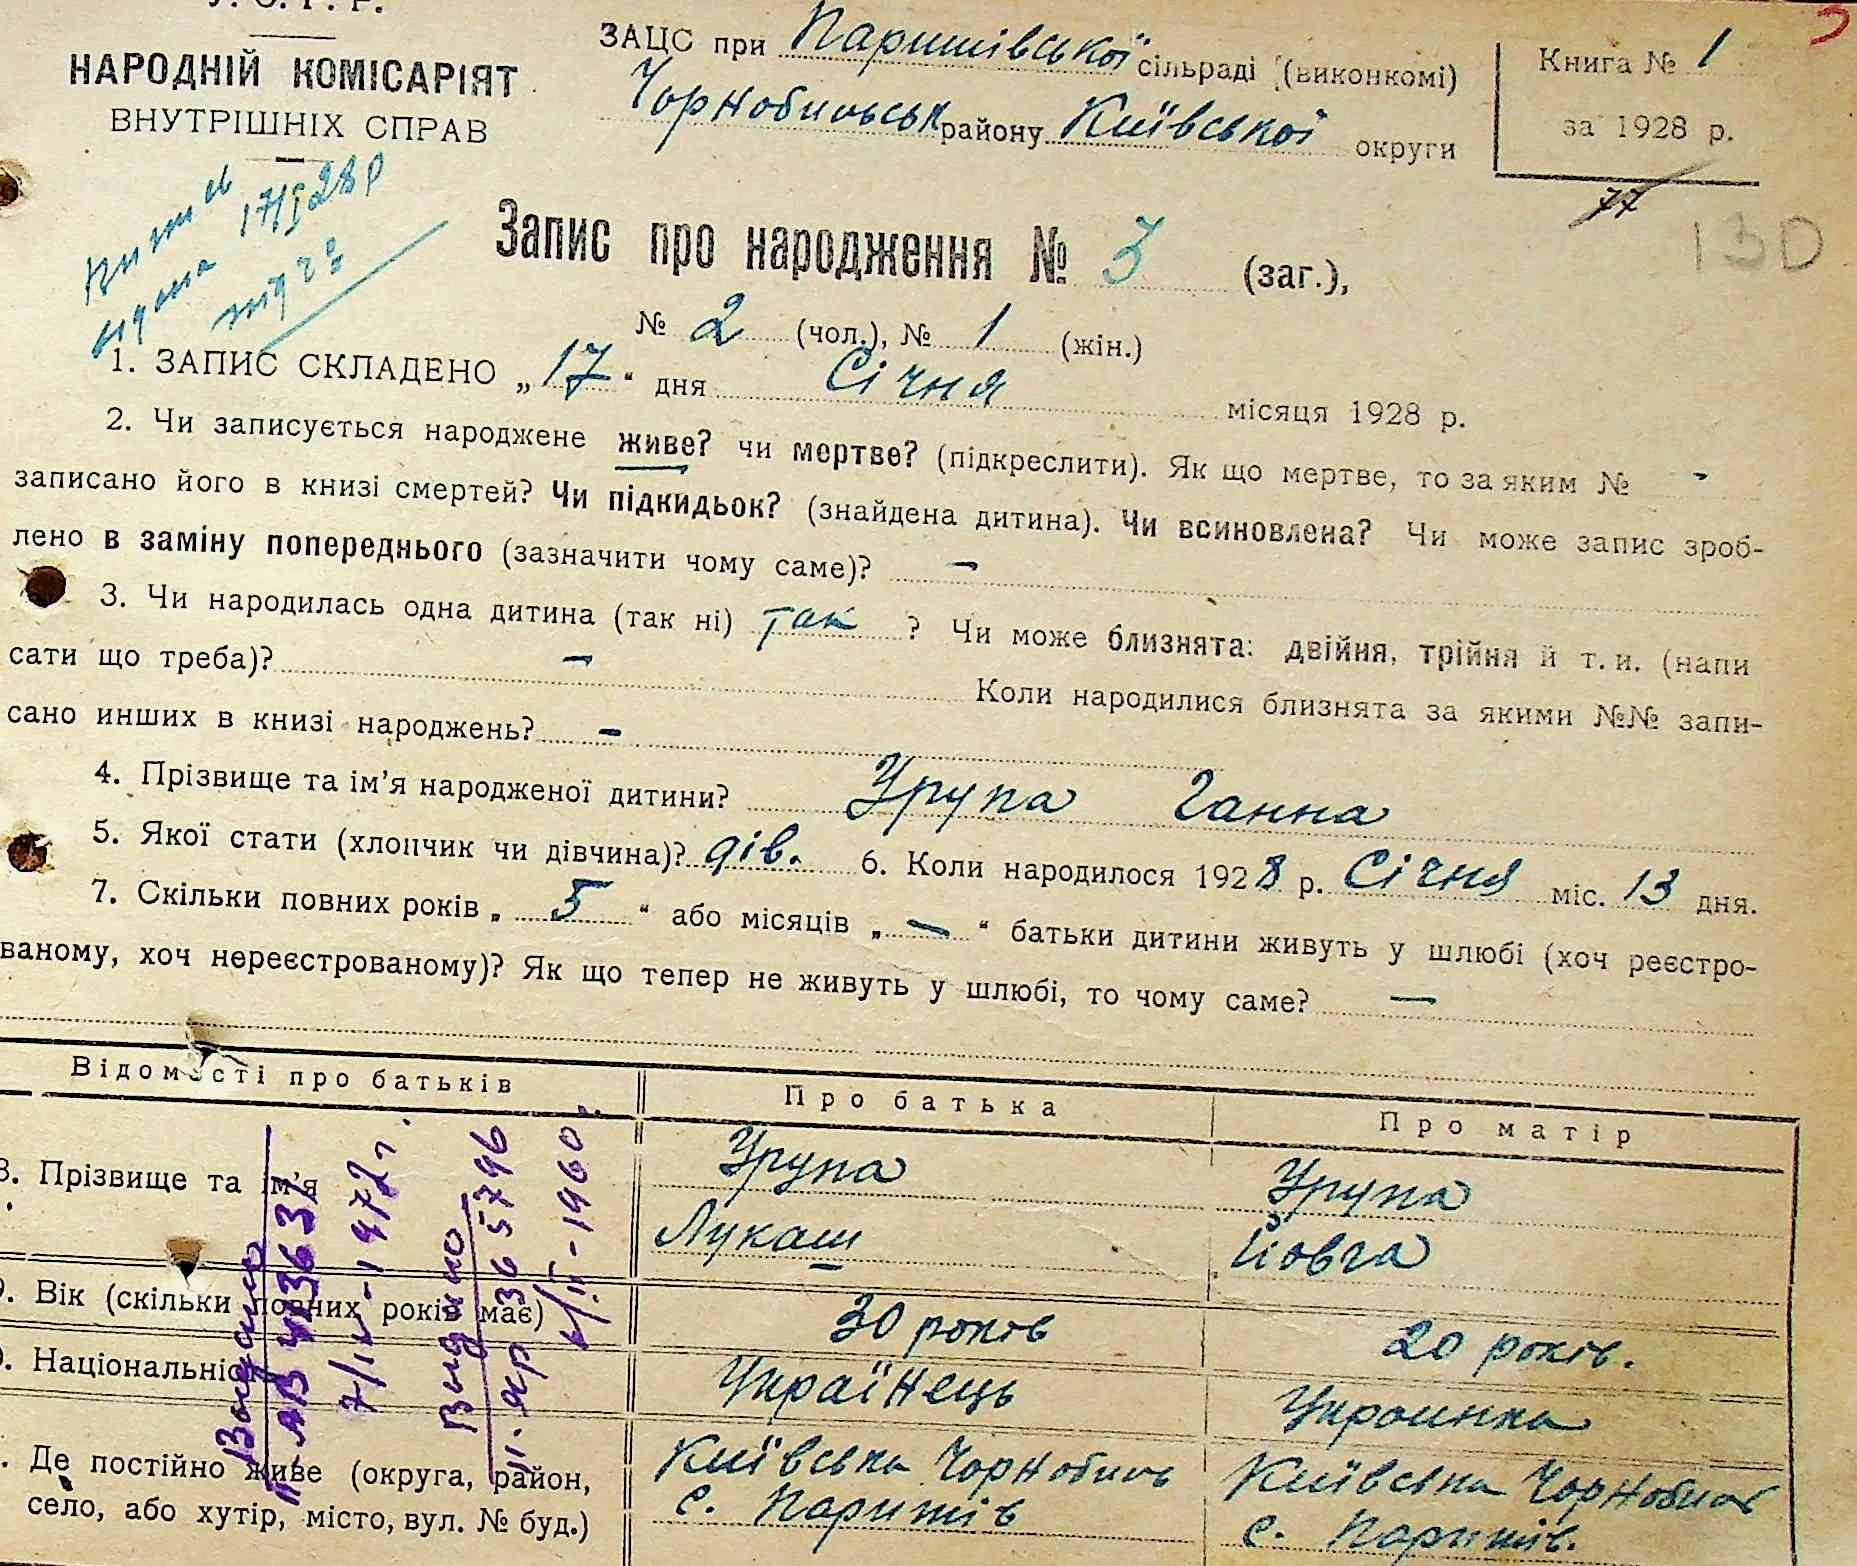 У. С. Р. Р.
НАРОДНІЙ КОМІСАРІЯТ
ВНУТРІШНІХ СПРАВ
ЗАЦС при Паришівської сільраді (виконкомі)
Чорнобильськ району Київської округи
Книга № 1
за 1928 р.
77
130
видана 17/I 28 р
Запис про народження № 3 (заг.),
№ 2 (чол.), № 1 (жін.)
1. ЗАПИС СКЛАДЕНО „17“ дня Січня місяця 1928 р.
2. Чи записується народжене живе? чи мертве? (підкреслити). Як що мертве, то за яким № -
записано його в книзі смертей? Чи підкидьок? (знайдена дитина). Чи всиновлена? Чи може запис зроб-
лено в заміну попереднього (зазначити чому саме)? -
3. Чи народилась одна дитина (так ні) так ? Чи може близнята: двійня, трійня й т. и. (напи
сати що треба)? - Коли народилися близнята за якими №№ запи-
сано инших в книзі народжень? -
4. Прізвище та ім’я народженої дитини? Зрупа Ганна
5. Якої стати (хлопчик чи дівчина)? дів. 6. Коли народилося 1928 р. Січня міс. 13 дня.
7. Скільки повних років „5“ або місяців „—“ батьки дитини живуть у шлюбі (хоч реєстро-
ваному, хоч нереєстрованому)? Як що тепер не живуть у шлюбі, то чому саме? —
Відомості про батьків Про батька Про матір
8. Прізвище та ім’я Зрупа Лукаш Зрупа Йовга
9. Вік (скільки повних років має) 30 років 20 років.
Національність Українець Украинка
Де постійно живе (округа, район,
село, або хутір, місто, вул. № буд.)
Київська Чорнобиль
с. Паришів
Київська Чорнобиль
с. Паришів.
Видано
7/IV-1972 г.
Видано
3657 96
-1960